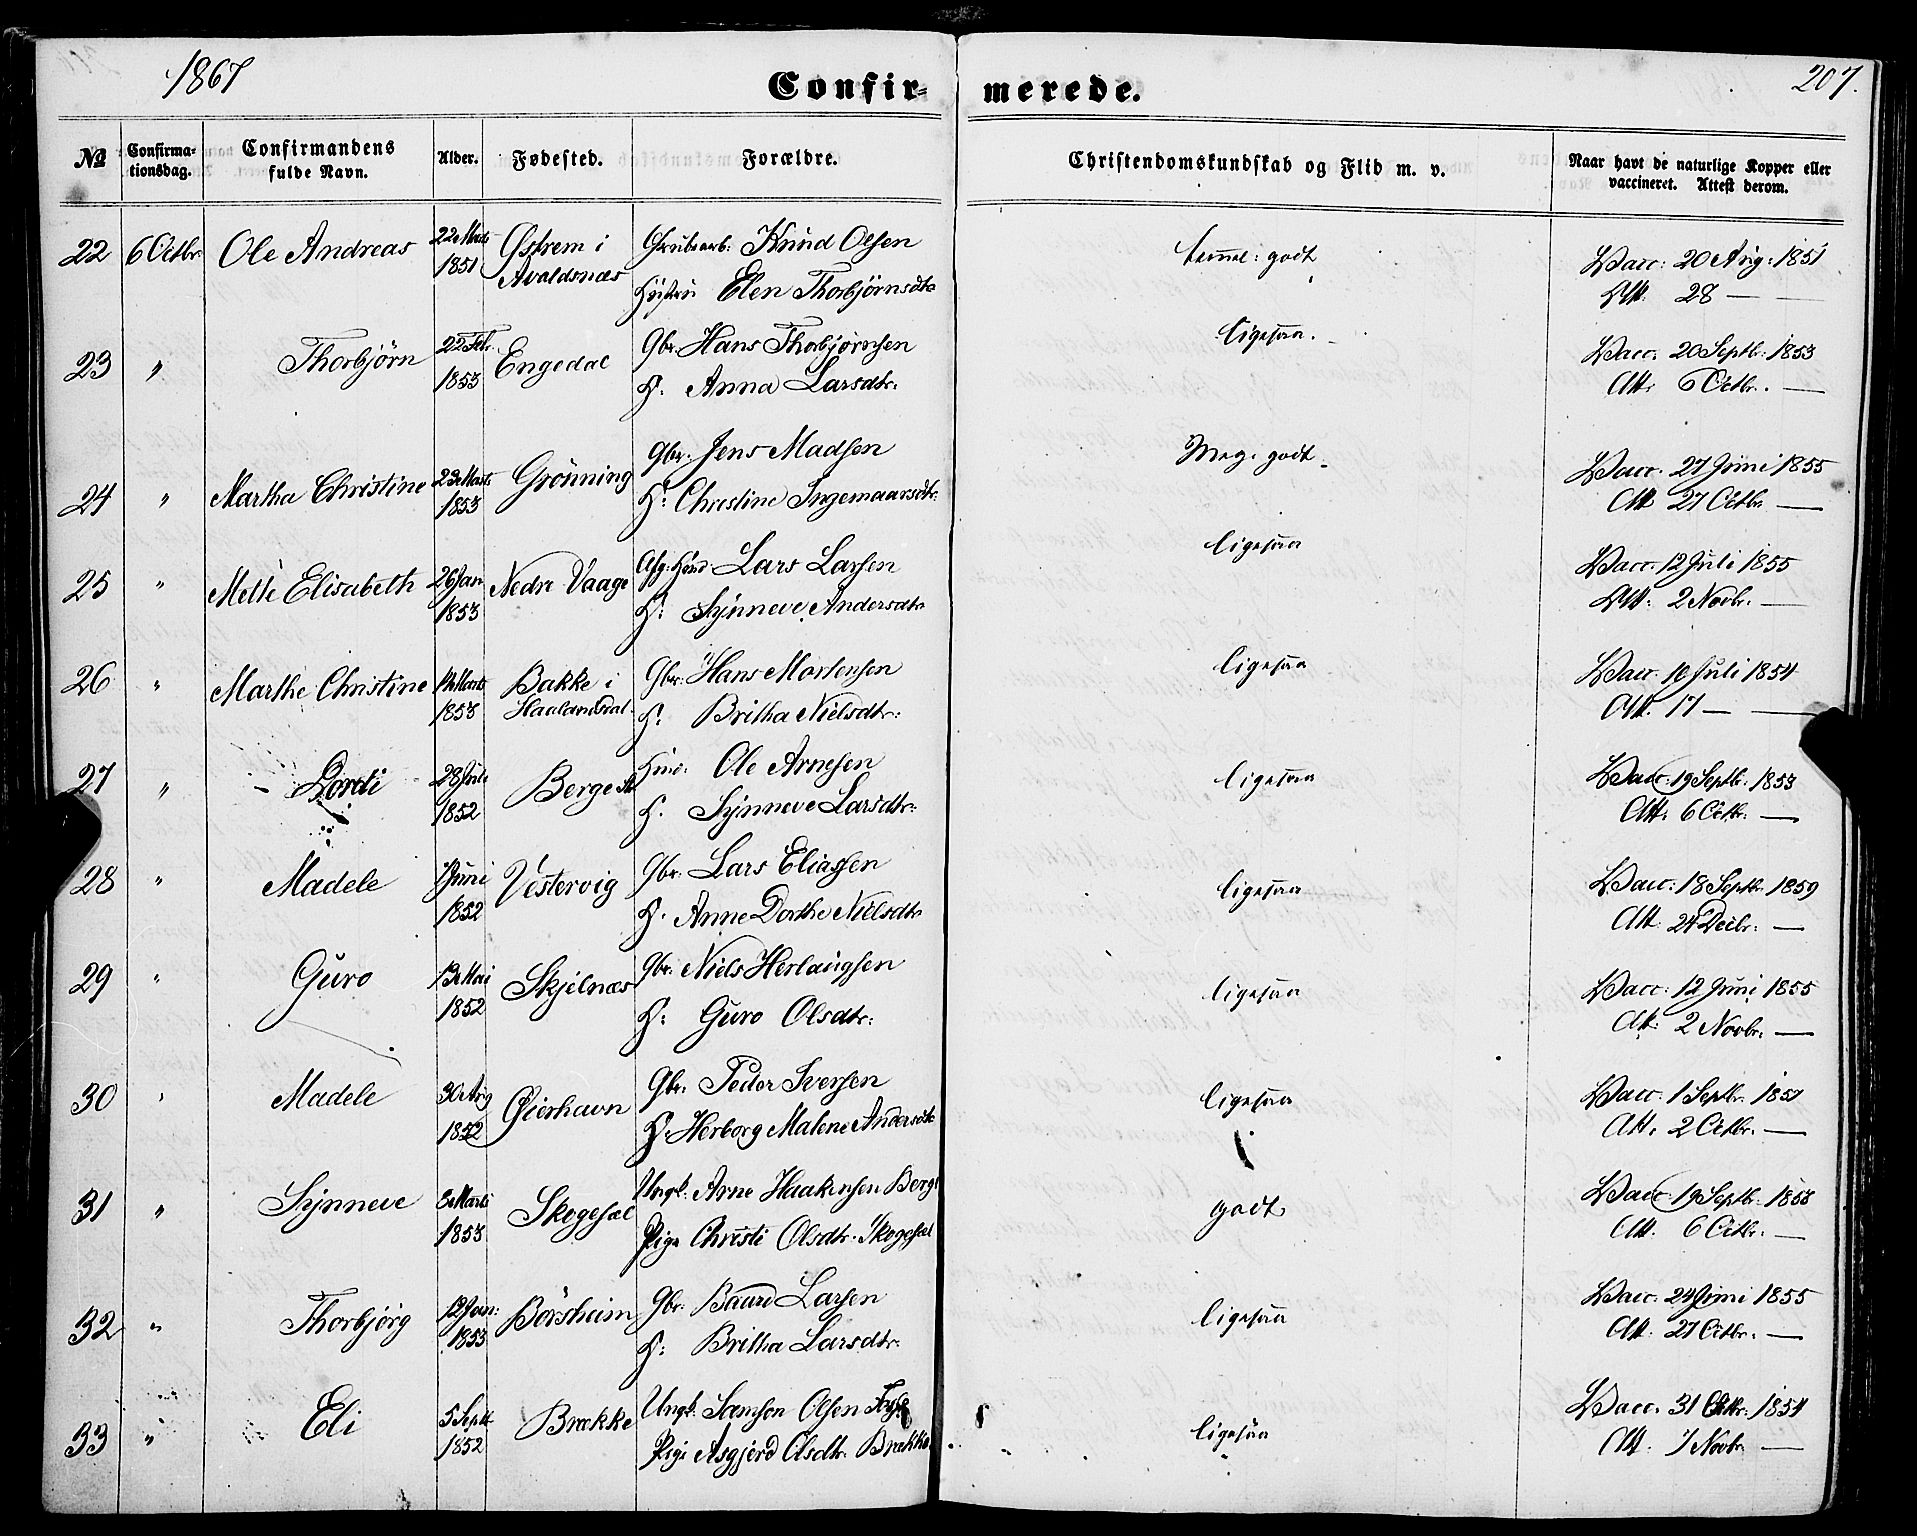 1867 Confirmerede. 207.
No Confirmationsdag. Confirmandens fulde Navn. Alder. Fødested. Forældre. Christendomskundskab og Flid m. v. Naar havt de naturlige Kopper eller vaccineret. Attest derom.
22 6 Octbr. Ole Andreas 22 Marts 1851 Østrem i Avaldsnæs Grubearb: Knud Olsen temmel: godt Vacc: 20 Aug: 1851
Hustru Elen Thorbjørnsdtr Att. 28 — —
23 " Thorbjörn 22 Febr. 1853 Engedal Gbr. Hans Thorbjørnsen ligesaa. Vacc. 20 Septb: 1853
H. Anna Larsdtr. Att. 6 Octbr. —
24 " Martha Christine 23 Marts 1853 Grönning Gbr. Jens Madsen Meg. godt. Vacc. 27 Juni 1855
H: Christine Ingemaarsdtr: Att 27 Octbr —
25 " Mette Elisabeth 26 Jan 1853 Nedre Vaage Lars Larsen ligesaa Vacc. 12 Juli 1855
H: Synneve Andersdtr Att: 2 Novbr. —
26 " Marthe Christine Marts 1853 Bakke i Haalandsdal. Gbr: Hans Mortensen ligesaa Vacc. 10 Juli 1854
H. Britha Nielsdtr: Att. 17 — —
27 " Dordi 28 Juli 1852 Berge Huus: Ole Arnesen ligesaa Vacc: 19 Septb. 1853
H. Synneve Larsdtr: Att: 6 Octbr. —
28 " Madele Juni 1852 Vestervig Gbr: Lars Eliassen ligesaa Vacc: 18 Septbr 1859
H. Anne Dorthe Nielsdtr Att. 24 Decbr: —
29 " Guro 13 Mai 1852 Skjelnæs Gbr: Niels Herlaugsen ligesaa Vacc: 12 Juni 1855
H: Guro Olsdtr: Att: 2 Novbr: —
30 " Madele 30 Aug 1852 Øierhavn Gbr: Peder Iversen ligesaa Vacc: 1 Septbr. 1857
H. Herborg Malene Andersdtr Att. 2 Octbr. —
31 " Synneve Marts 1853 Skogesæl Ungk: Arne Haakensen Berge godt Vacc 19 Septb. 1853
Pige Christi Olsdtr. Skogesæl Att. 6 Octbr. —
32 " Thorbjörg 12 Jan: 1853 Börsheim Gbr: Baard Larsen ligesaa Vacc. 24 Juni 1855
H. Britha Larsdtr. Att. 27 Octbr. —
33 " Eli 5 Septb 1852 Brække Ungk: Samson Olsen ligesaa Vacc. 31 Octbr: 1854
Pige Asgjerd Olsdtr. Brække Att. 7 Novbr —